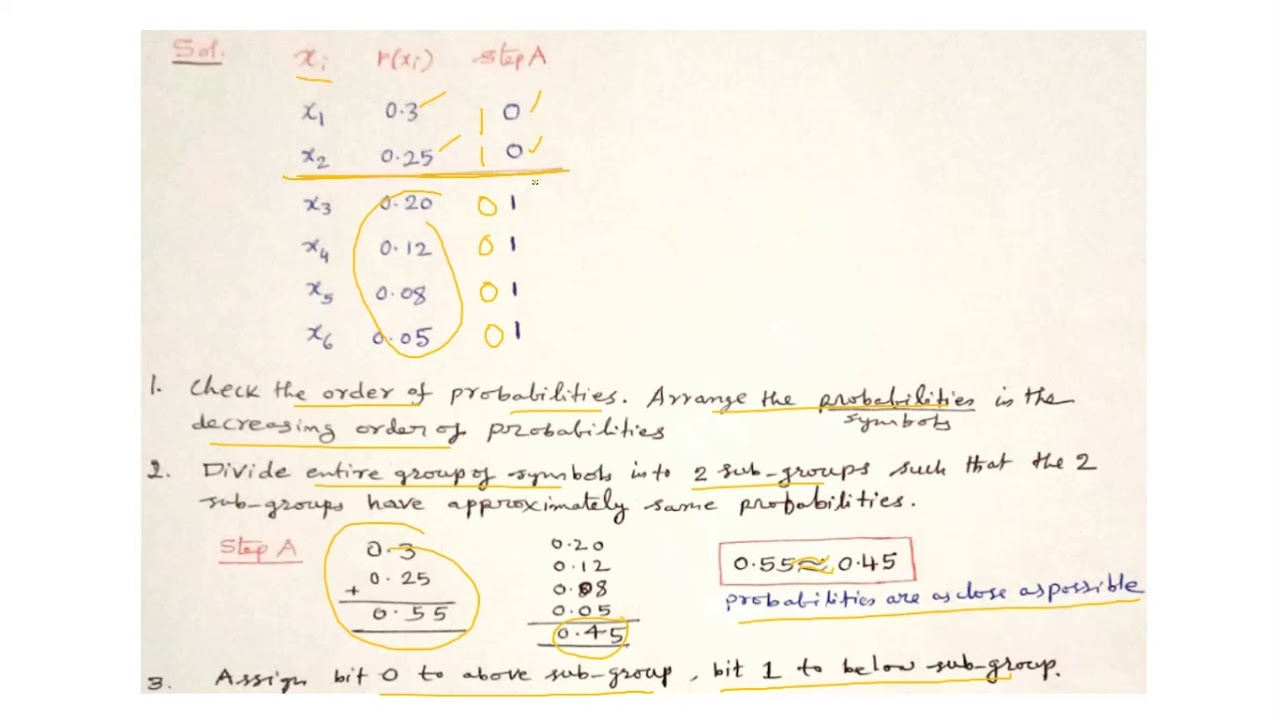 Sol. xi P(xi) Step A
x1 0.3 1 0
x2 0.25 1 0
x3 0.20 0 1
x4 0.12 0 1
x5 0.08 0 1
x6 0.05 0 1
1. Check the order of probabilities. Arrange the probabilities in the
symbols
decreasing order of probabilities
2. Divide entire group of symbols into 2 sub-groups such that the 2
sub-groups have approximately same probabilities.
Step A 0.3 0.20
+ 0.25 0.12
0.55 0.08
0.05
0.45
0.55 ≈ 0.45
probabilities are as close as possible
3. Assign bit 0 to above sub-group, bit 1 to below sub-group.